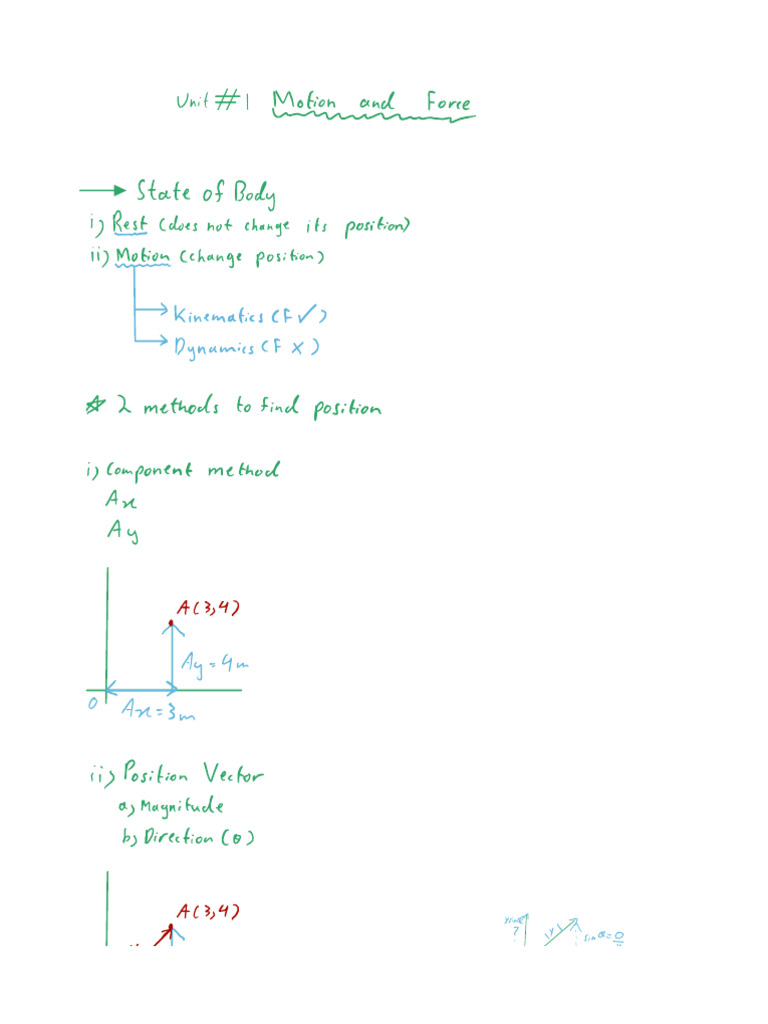 Unit #1 Motion and Force
→ State of Body
i) Rest (does not change its position)
ii) Motion (change position)
Kinematics (F ✓)
Dynamics (F ✗)
☆ 2 methods to find position
i) Component method
Ax
Ay
A(3,4)
Ay = 4m
O
Ax = 3m
ii) Position Vector
a) Magnitude
b) Direction (θ)
A(3,4)
?
sin θ = O